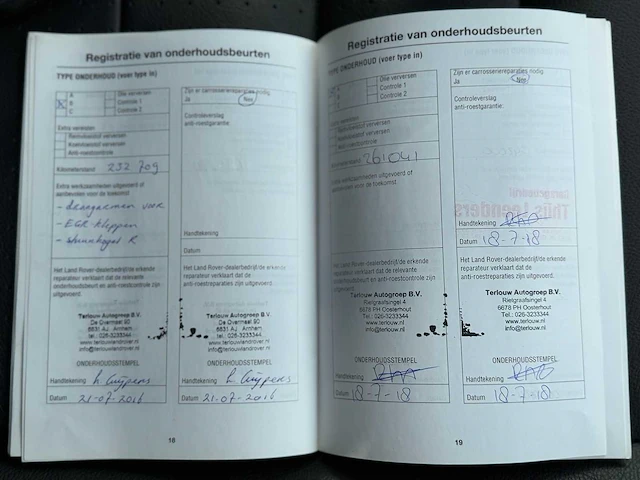 Registratie van onderhoudsbeurten
TYPE ONDERHOUD (voer type in)
A
B
C
Olie verversen
Controle 1
Controle 2
Extra vereisten
Remvloeistof verversen
Koelvloeistof verversen
Anti-roestcontrole
Kilometerstand 232.709
Extra werkzaamheden uitgevoerd of
aanbevolen voor de toekomst
- draagarmen voor
- EGR kleppen
Het Land Rover-dealerbedrijf/de erkende
reparateur verklaart dat de relevante
onderhoudsbeurt en anti-roestcontrole zijn
uitgevoerd.
Terlouw Autogroep B.V.
De Overmaat 90
6831 AJ Arnhem
Tel.: 026-3233344
www.terlouwlandrover.nl
info@terlouwlandrover.nl
ONDERHOUDSSTEMPEL
Handtekening
Datum 21-07-2016
Zijn er carrosseriereparaties nodig
Ja
Nee
Controleverslag
anti-roestgarantie:
Handtekening
Datum
Het Land Rover-dealerbedrijf/de erkende
reparateur verklaart dat de
anti-roestreparaties zijn uitgevoerd.
Terlouw Autogroep B.V.
De Overmaat 90
6831 AJ Arnhem
Tel.: 026-3233344
www.terlouwlandrover.nl
info@terlouwlandrover.nl
ONDERHOUDSSTEMPEL
Handtekening
Datum 21-07-2016
18
Registratie van onderhoudsbeurten
TYPE ONDERHOUD (voer type in)
A
B
C
Olie verversen
Controle 1
Controle 2
Extra vereisten
Remvloeistof verversen
Koelvloeistof verversen
Anti-roestcontrole
Kilometerstand 261041
Extra werkzaamheden uitgevoerd of
aanbevolen voor de toekomst
Het Land Rover-dealerbedrijf/de erkende
reparateur verklaart dat de relevante
onderhoudsbeurt en anti-roestcontrole zijn
uitgevoerd.
Terlouw Autogroep B.V.
Rietgraafsingel 4
6678 PH Oosterhout
Tel.: 026-3233344
www.terlouw.nl
info@terlouw.nl
ONDERHOUDSSTEMPEL
Handtekening
Datum 18-7-18
Zijn er carrosseriereparaties nodig
Ja
Nee
Controleverslag
anti-roestgarantie:
Thijs Leenders
Handtekening
Datum 18-7-18
Het Land Rover-dealerbedrijf/de erkende
reparateur verklaart dat de
anti-roestreparaties zijn uitgevoerd.
Terlouw Autogroep B.V.
Rietgraafsingel 4
6678 PH Oosterhout
Tel.: 026-3233344
www.terlouw.nl
info@terlouw.nl
ONDERHOUDSSTEMPEL
Handtekening
Datum 18-7-18
19